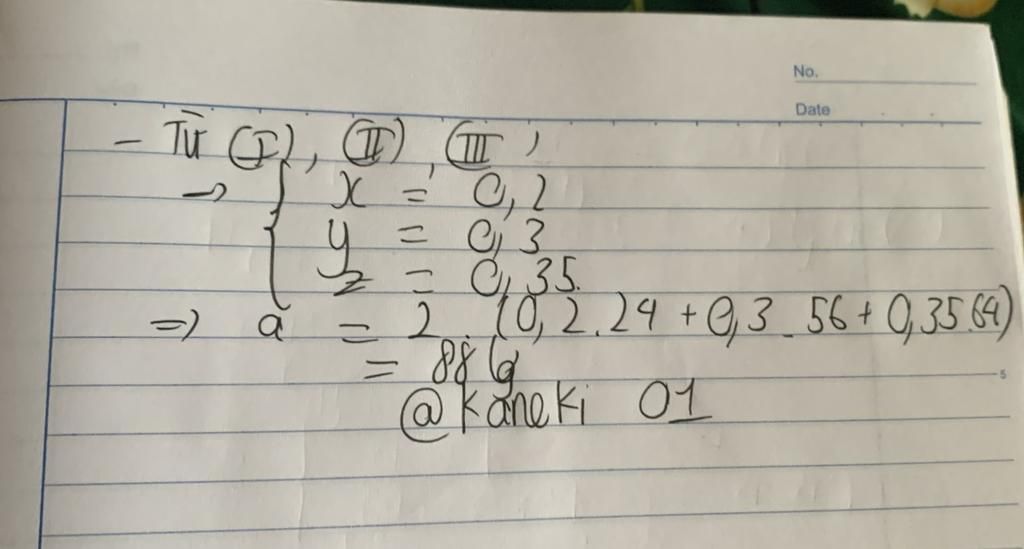 No.
Date
- Từ (I), (II), (III),
→ { x = 0,2
y = 0,3
z = 0,35.
=> a = 2.(0,2.24 + 0,3.56 + 0,35.64)
= 88 (g
@Kaneki 01
5